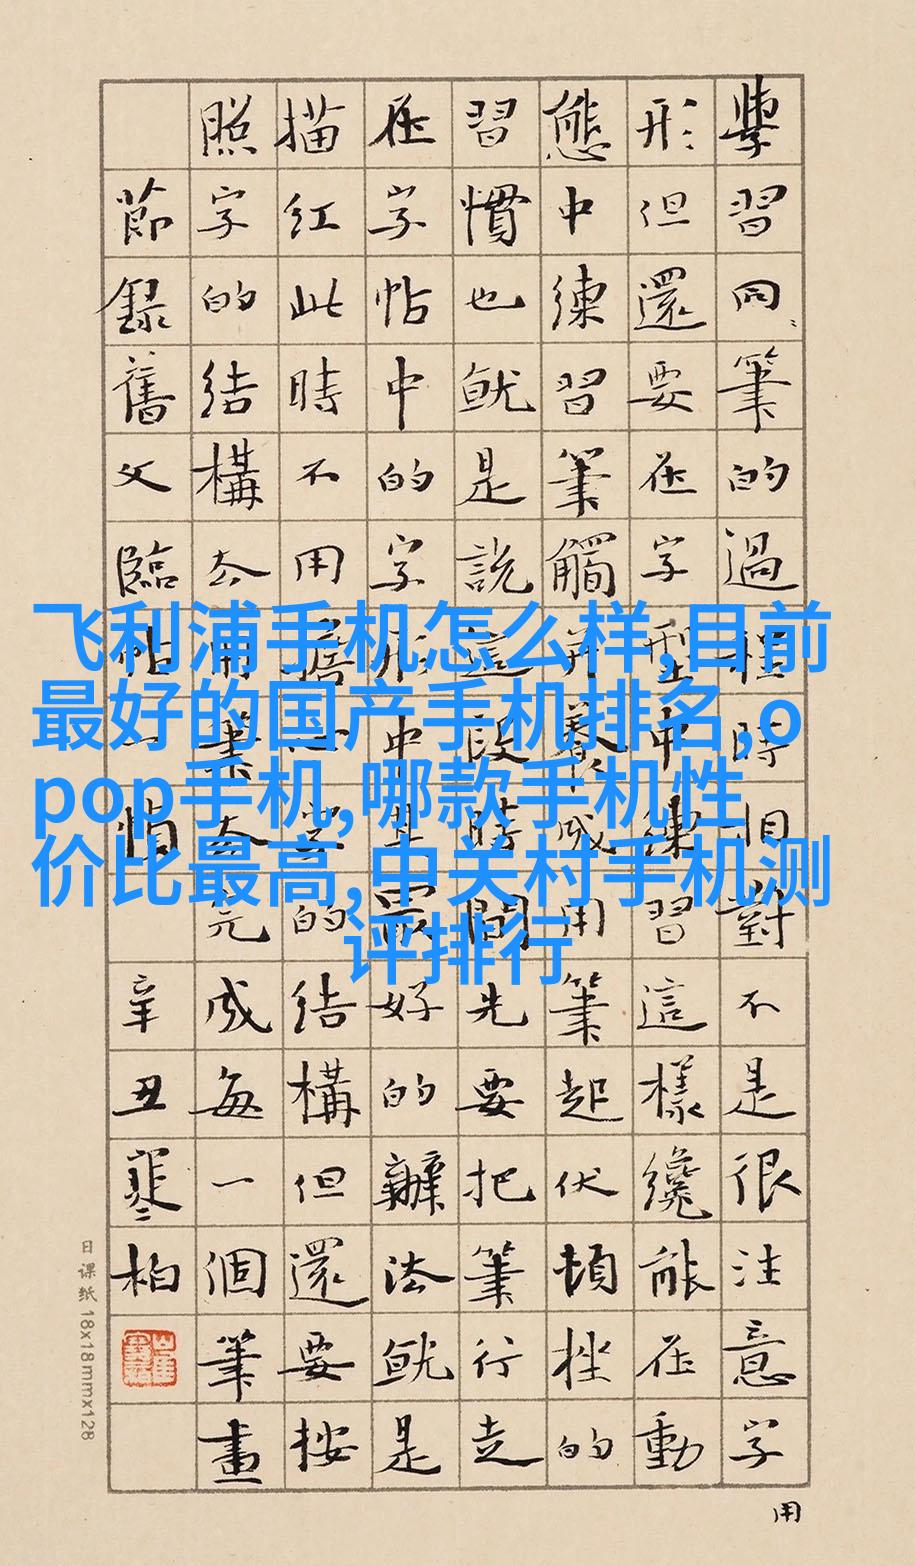 學習同筆的過程時但對不是很注意字
形但還要在字型中練習這樣纔能在動
態中練習筆觸并養成用筆起伏頓挫的
習慣也就是說這段時間先要把筆行走
在字帖中的字形中最好的辦法就是
描紅此時不用擔心字的結構但還要按
照字的結構去用筆去完成每一個筆畫
節錄舊文臨帖一
辛丑寒柏
用
日课纸 18x18mmx128
飞利浦手机怎么样,目前
最好的国产手机排名,o
pop手机,哪款手机性
价比最高,中关村手机测
评排行